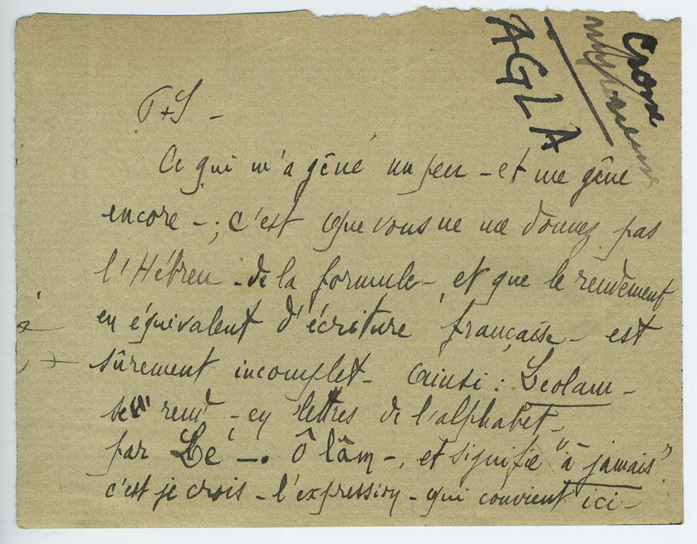 AGLA
Croix
T+S -
Ce qui m'a gêné un peu - et me gêne
encore - ; c'est que vous ne me donnez pas
l'Hébreu - de la formule -, et que le rendement
en équivalent d'écriture française - est
sûrement incomplet - Ainsi : Leolam -
se rend - en lettres de l'alphabet -
par Lé - . Ô lâm -, et signifie "à jamais"
c'est je crois - l'expression - qui convient ici -